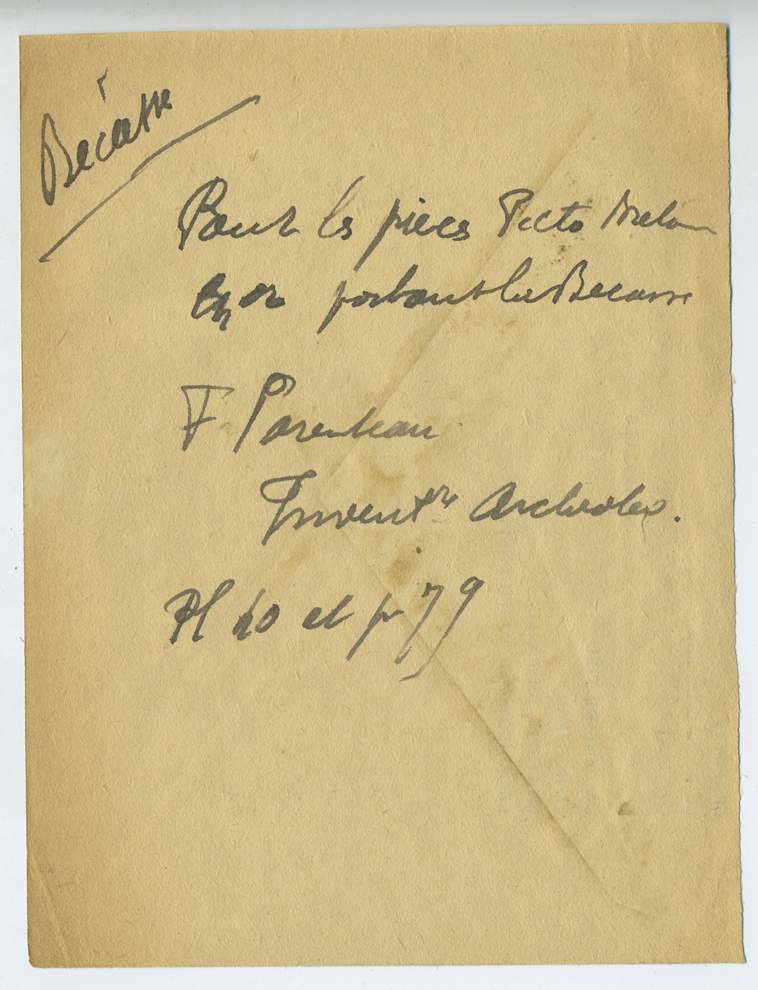 Becasse
Pour les pieces Picto
en or portant la Becasse
F Parenteau
Invent re Archeolo.
Pl 40 et p 79